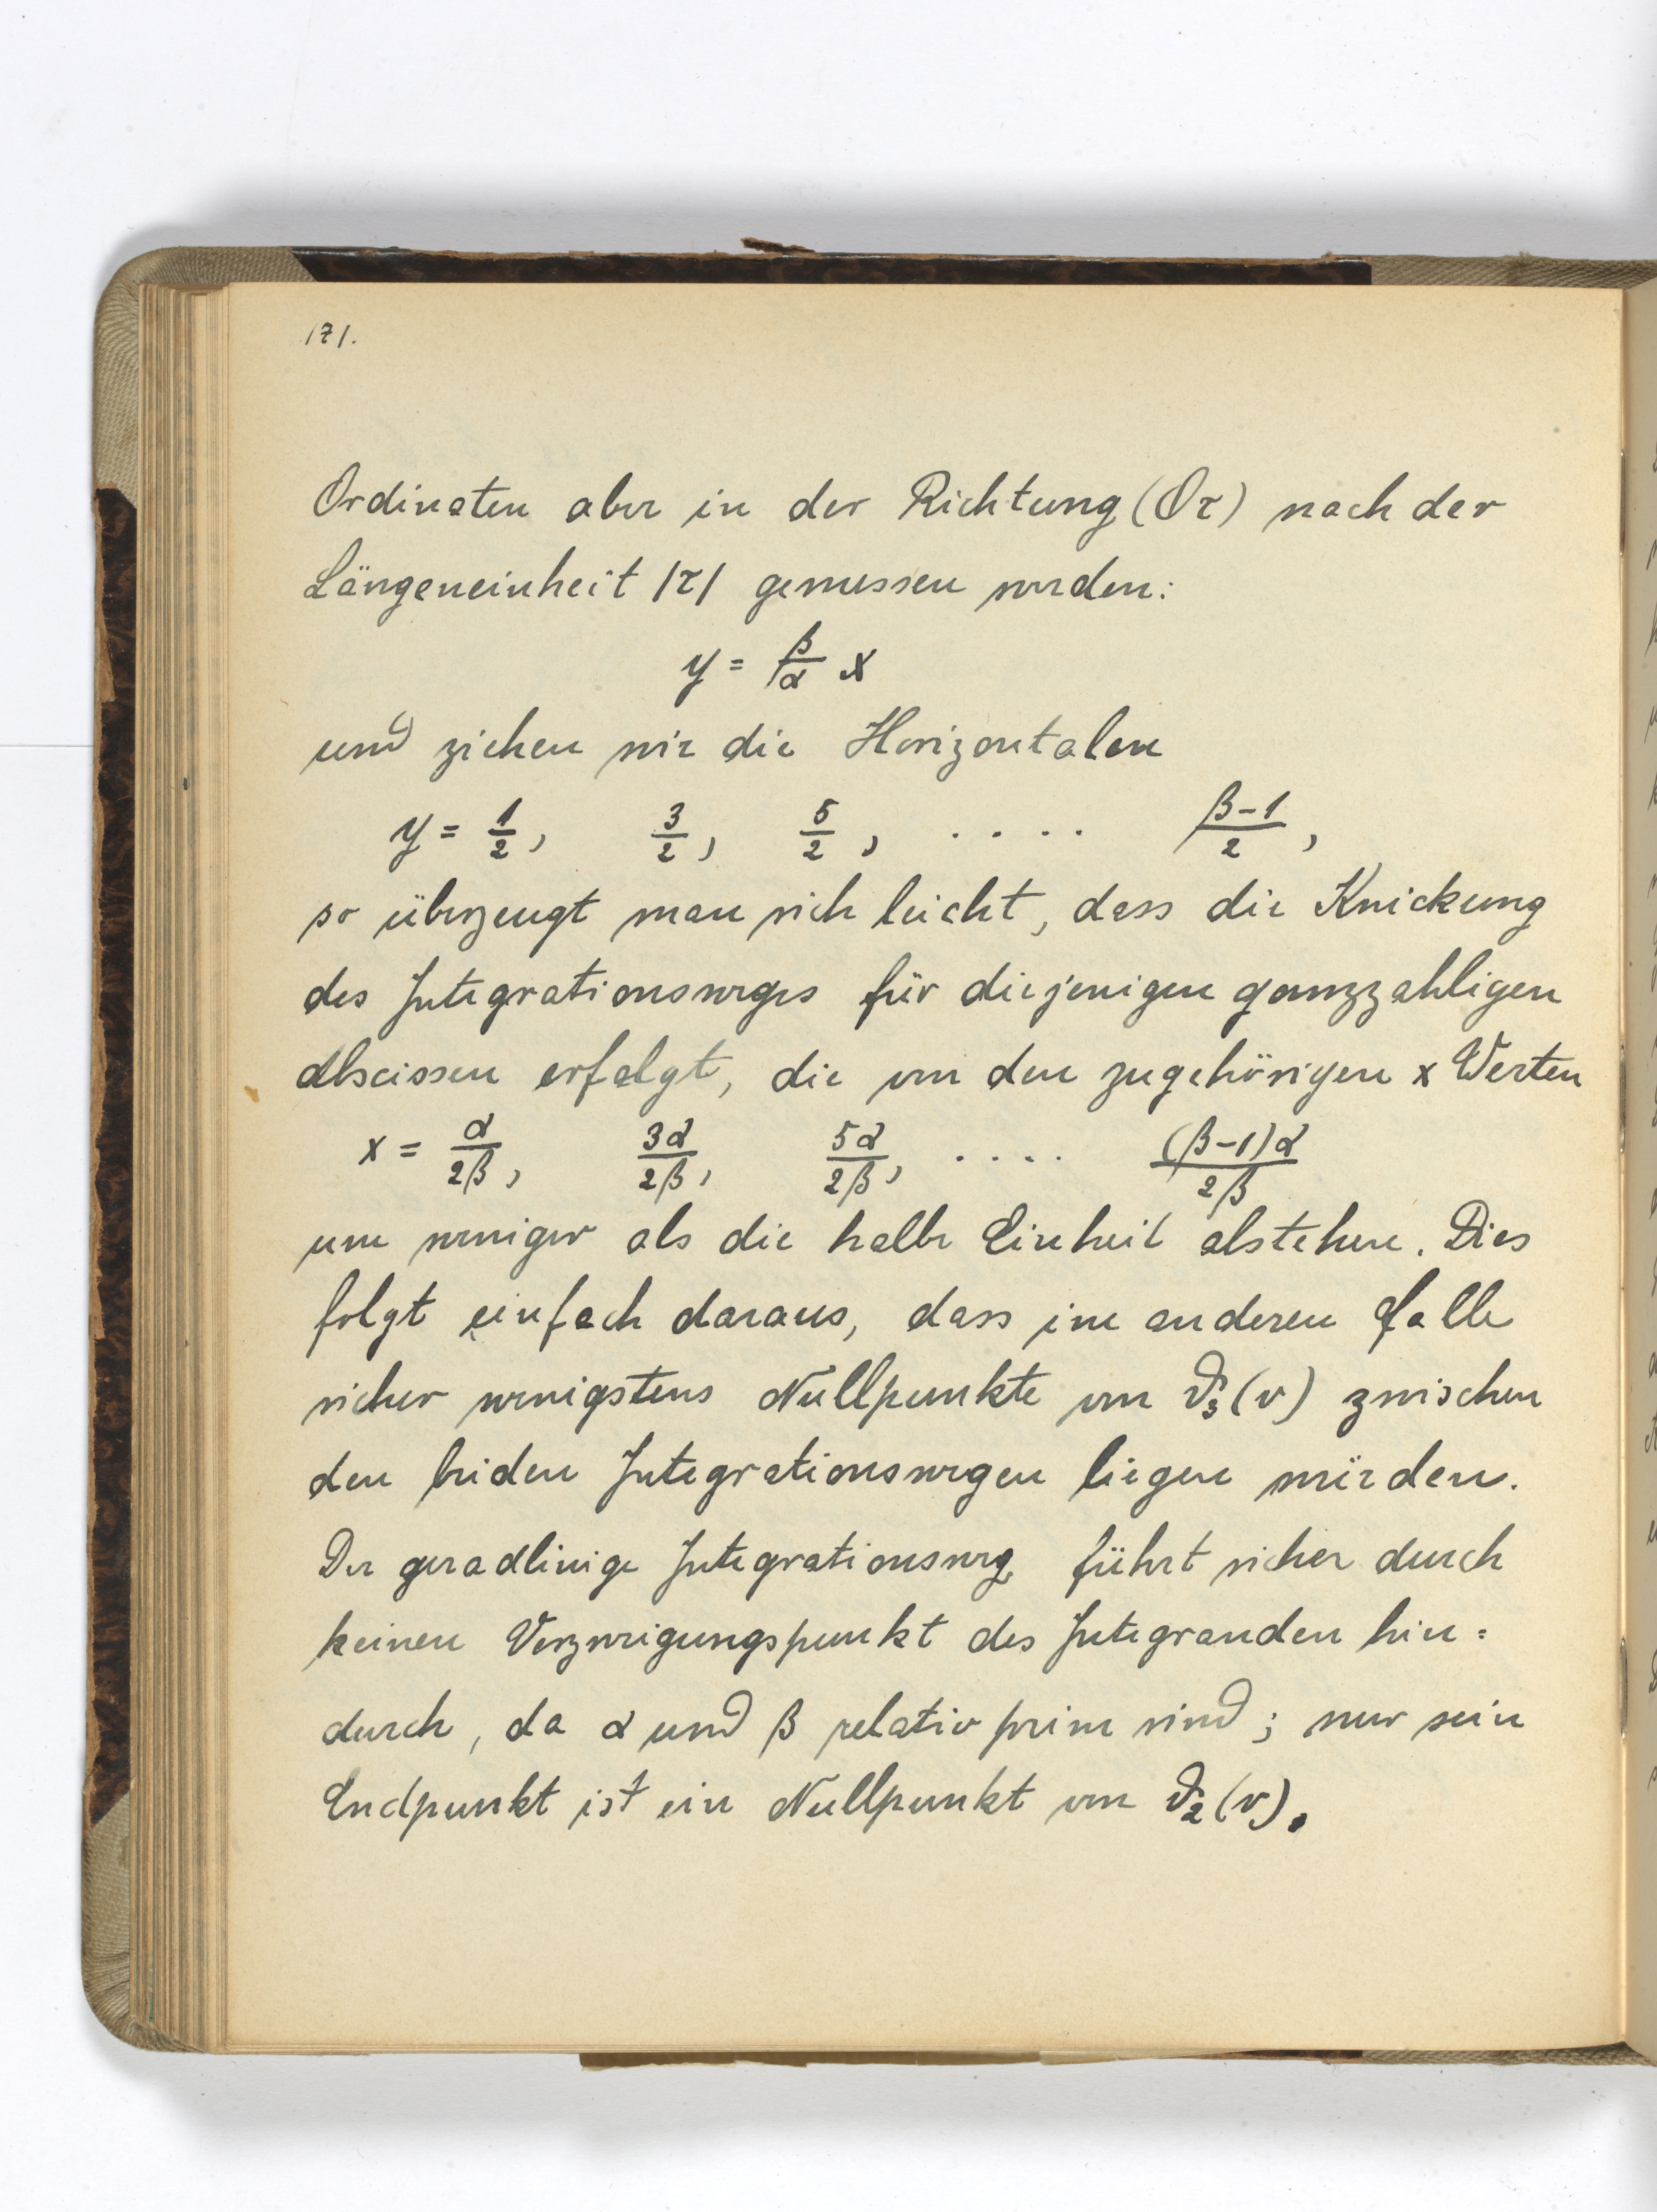 171.
Ordinaten aber in der Richtung (Oτ) nach der
Längeneinheit |τ| gemessen werden:
y = β/α x
und ziehen wir die Horizontalen
y = 1/2, 3/2, 5/2, . . . . (β-1)/2,
so überzeugt man sich leicht, dass die Knickung
des Integrationsweges für diejenigen ganzzahligen
Abscissen erfolgt, die von den zugehörigen x Werten
x = α/2β, 3α/2β, 5α/2β, . . . . (β-1)α/2β
um weniger als die halbe Einheit abstehen. Dies
folgt einfach daraus, dass im anderen Falle
sicher wenigstens Nullpunkte von ϑ₃(v) zwischen
den beiden Integrationswegen liegen würden.
Der geradlinige Integrationsweg führt sicher durch
keinen Verzweigungspunkt des Integranden hin=
durch, da α und β relativ prim sind; nur sein
Endpunkt ist ein Nullpunkt von ϑ₂(v).